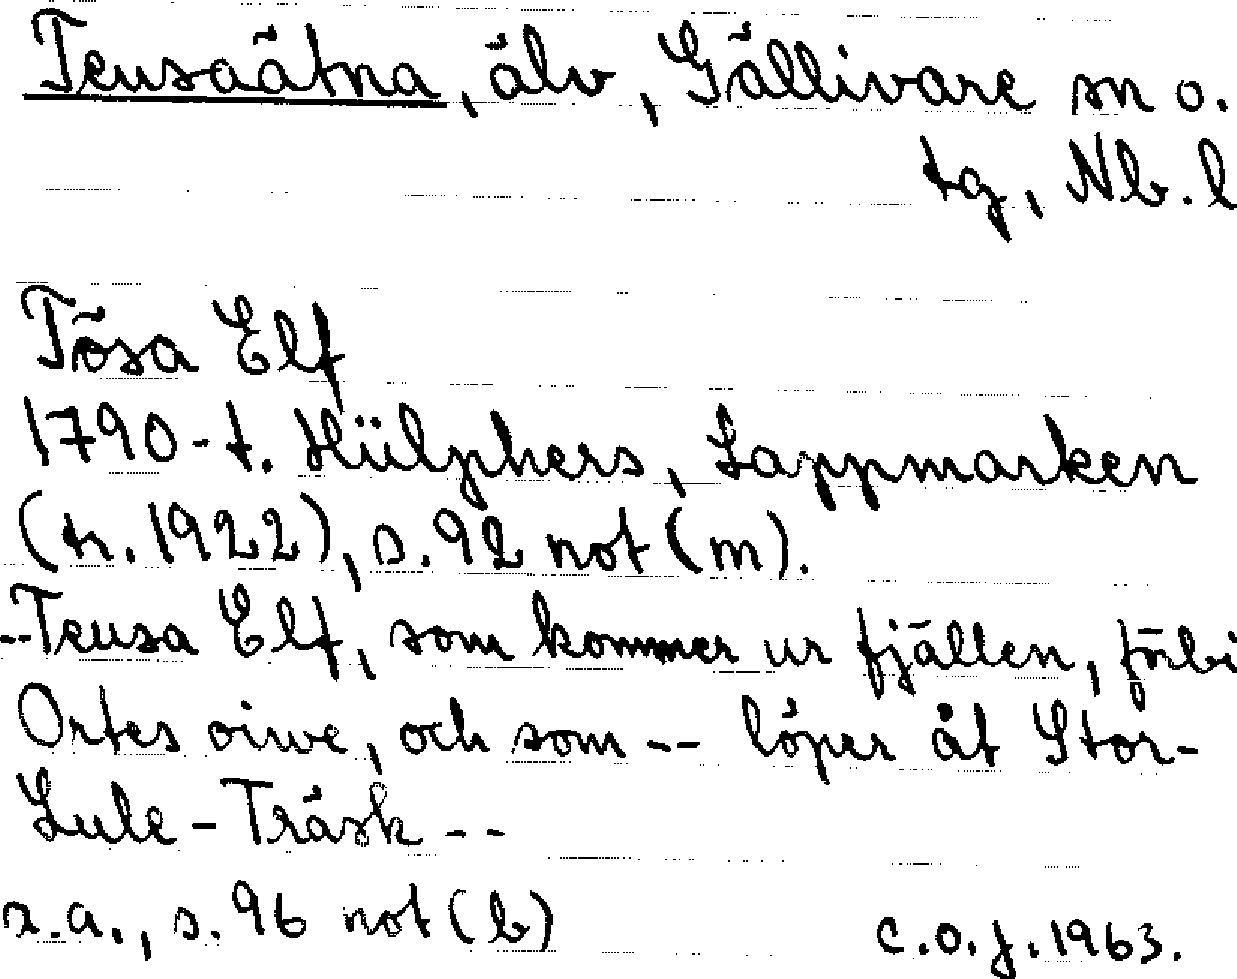 Teusaätna, älv, Gällivare sn o.
tg, Nb. l
Tösa Elf
1790-t. Hülphers, Lappmarken
(tr. 1922), s. 92 not (m).
--Teusa Elf, som kommer ur fjällen, förbi
Ortes oiwe, och som -- löper åt Stor-
Lule-Träsk --
s.a., s. 96 not (b)
C.O.J. 1963.